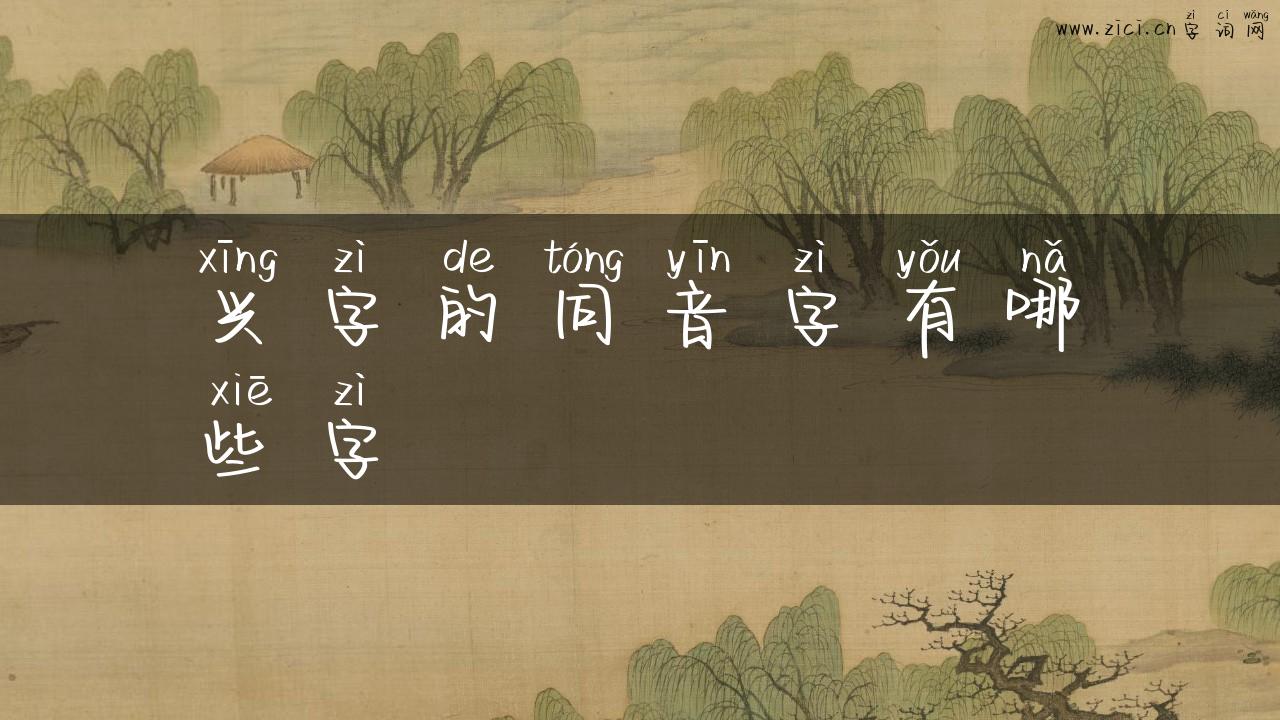 zì cí wǎng
www.zici.cn 字 词 网
xīng zì de tóng yīn zì yǒu nǎ
兴 字 的 同 音 字 有 哪
xiē zì
些 字